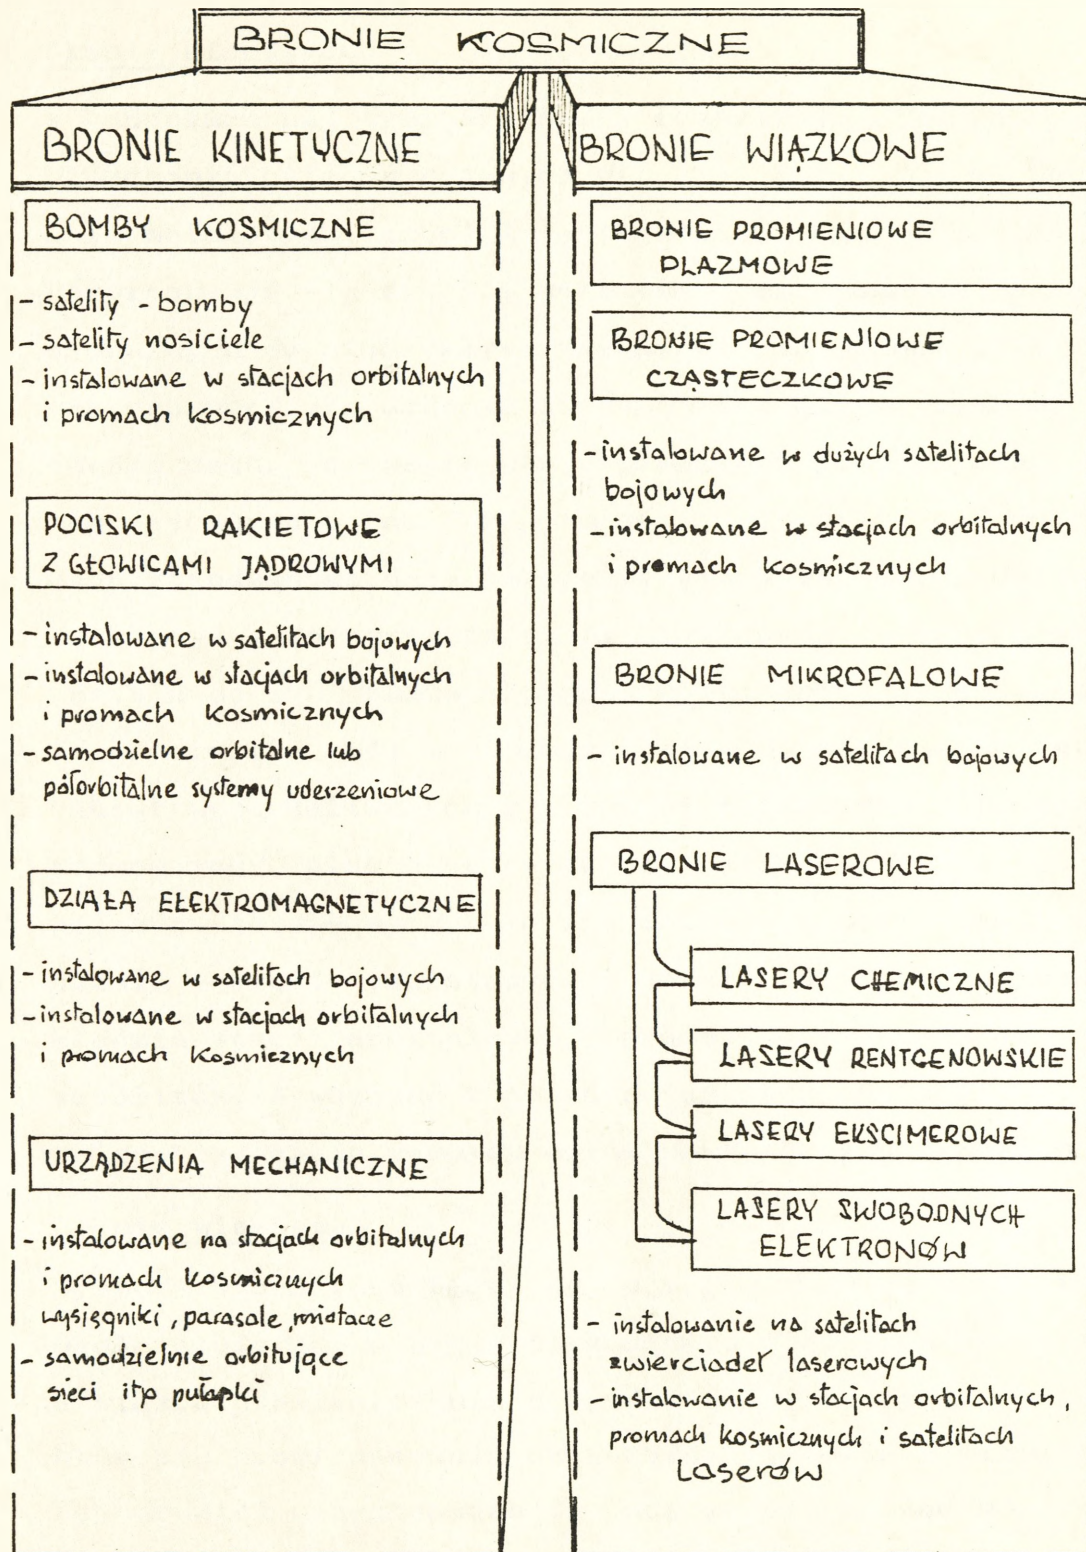 BRONIE KOSMICZNE
BRONIE KINETYCZNE
BOMBY KOSMICZNE
- satelity - bomby
- satelity nosiciele
- instalowane w stacjach orbitalnych
i promach kosmicznych
POCISKI RAKIETOWE
Z GŁOWICAMI JĄDROWYMI
- instalowane w satelitach bojowych
- instalowane w stacjach orbitalnych
i promach kosmicznych
- samodzielne orbitalne lub
półorbitalne systemy uderzeniowe
DZIAŁA EŁEKTROMAGNETYCZNE
- instalowane w satelitach bojowych
- instalowane w stacjach orbitalnych
i promach kosmicznych
URZĄDZENIA MECHANICZNE
- instalowane na stacjach orbitalnych
i promach kosmicznych
wysięgniki, parasole, miotacze
- samodzielnie orbitujące
sieci itp pułapki
BRONIE WIĄZKOWE
BRONIE PROMIENIOWE
PLAZMOWE
BRONIE PROMIENIOWE
CZĄSTECZKOWE
- instalowane w dużych satelitach
bojowych
- instalowane w stacjach orbitalnych
i promach kosmicznych
BRONIE MIKROFALOWE
- instalowane w satelitach bojowych
BRONIE LASEROWE
LASERY CHEMICZNE
LASERY RENTGENOWSKIE
LASERY EKSCIMEROWE
LASERY SWOBODNYCH
ELEKTRONÓW
- instalowanie na satelitach
zwierciadeł laserowych
- instalowanie w stacjach orbitalnych,
promach kosmicznych i satelitach
Laserów